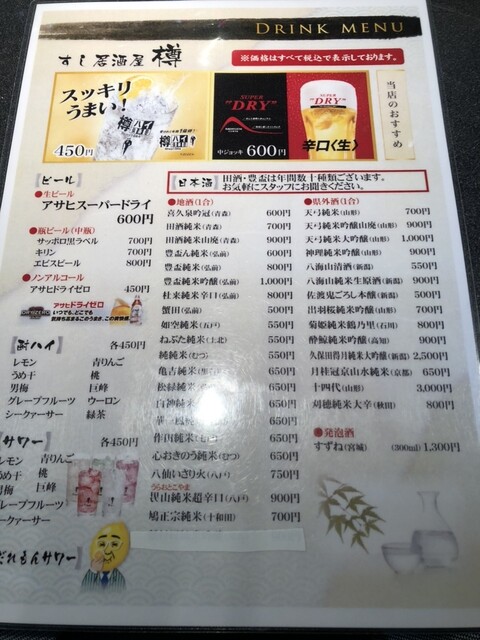 DRINK MENU
すし居酒屋 樽
※価格はすべて税込で表示しております。
スッキリ
うまい!
450円
樽ハイ
樽ハイ
SUPER
"DRY"
中ジョッキ 600円
SUPER
"DRY"
辛口〈生〉
当店のおすすめ
ビール
●生ビール
アサヒスーパードライ
600円
●瓶ビール(中瓶)
サッポロ黒ラベル 700円
キリン 700円
エビスビール 800円
●ノンアルコール
アサヒドライゼロ 450円
アサヒドライゼロ
いつでも、どこでも
酎ハイ 各450円
レモン 青りんご
うめ干 桃
男梅 巨峰
グレープフルーツ ウーロン
シークァーサー 緑茶
サワー 各450円
レモン 青りんご
うめ干 桃
男梅 巨峰
グレープフルーツ
シークァーサー
だれもんサワー
日本酒
田酒・豊盃は年間数十種類ございます。
お気軽にスタッフにお聞きください。
●地酒(1合)
喜久泉吟冠(青森) 600円
田酒純米(青森) 700円
田酒純米山廃(青森) 900円
豊盃ん純米(弘前) 600円
豊盃純米(弘前) 800円
豊盃純米吟醸(弘前) 1,000円
杜来純米辛口(弘前) 800円
蟹田(弘前) 500円
如空純米(五戸) 550円
ねぶた純米(上北) 550円
純純米(むつ) 550円
亀吉純米 650円
松緑純米 650円
白神純米 650円
650円
作田純米 650円
心おきのう純米(むつ) 650円
八仙いさり火(八戸) 750円
うらおとこやま
裏男山純米超辛口(八戸) 900円
鳩正宗純米(十和田) 700円
●県外酒(1合)
天弓純米(山形) 700円
天弓純米吟醸山廃(山形) 900円
天弓純米大吟醸(山形) 1,000円
神理純米吟醸(山形) 900円
八海山清酒(新潟) 550円
八海山純米生原酒(新潟) 900円
佐渡鬼ごろし本醸(新潟) 500円
出羽桜純米吟醸(山形) 700円
菊姫純米鶴乃里(石川) 800円
酔鯨純米吟醸(高知) 900円
久保田萬月純米大吟醸(新潟) 2,500円
月桂冠京山水純米(京都) 650円
十四代(山形) 3,000円
刈穂純米大辛(秋田) 800円
●発泡酒
すずね(宮城) (300ml) 1,300円